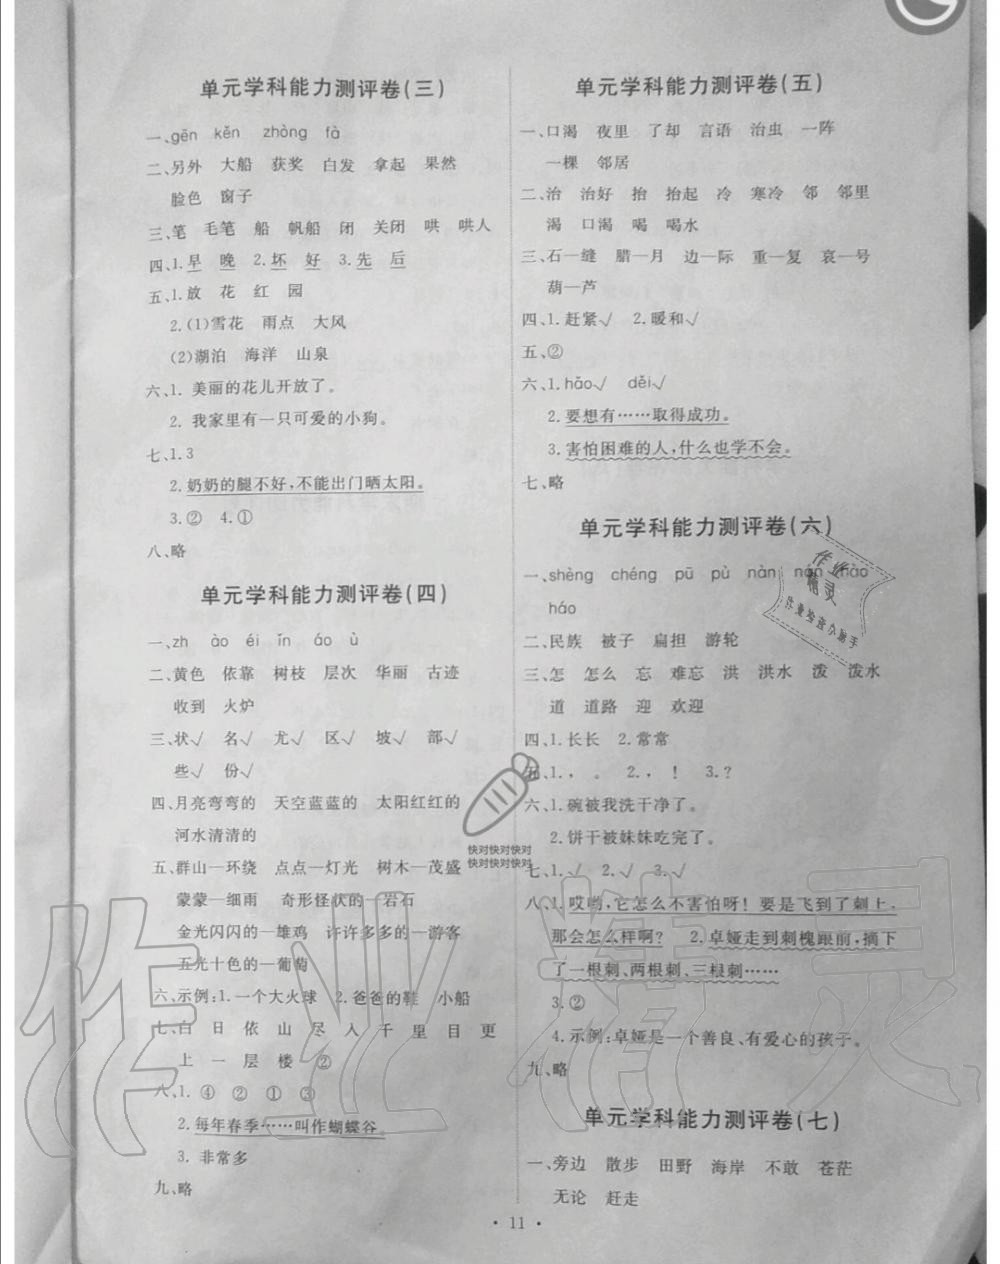 单元学科能力测评卷(三)
一、gēn kěn zhòng fà
二、另外 大船 获奖 白发 拿起 果然
脸色 窗子
三、笔 毛笔 船 帆船 闭 关闭 哄 哄人
四、1.早 晚 2.坏 好 3.先 后
五、1.放 花 红 园
2.(1)雪花 雨点 大风
(2)湖泊 海洋 山泉
六、1. 美丽的花儿开放了。
2. 我家里有一只可爱的小狗。
七、1.3
2.奶奶的腿不好,不能出门晒太阳。
3.② 4.①
八、略
单元学科能力测评卷(四)
一、zh ào éi ǐn áo ù
二、黄色 依靠 树枝 层次 华丽 古迹
收到 火炉
三、状√ 名√ 尤√ 区√ 坡√ 部√
些√ 份√
四、月亮弯弯的 天空蓝蓝的 太阳红红的
河水清清的
五、群山—环绕 点点—灯光 树木—茂盛
蒙蒙—细雨 奇形怪状的—岩石
金光闪闪的—雄鸡 许许多多的—游客
五光十色的—葡萄
六、示例:1.一个大火球 2.爸爸的鞋 小船
七、白 日 依 山 尽 入 千 里 目 更
上 一 层 楼 ②
八、1. ④ ② ① ③
2.每年春季……叫作蝴蝶谷。
3. 非常多
九、略
单元学科能力测评卷(五)
一、口渴 夜里 了却 言语 治虫 一阵
一棵 邻居
二、治 治好 抬 抬起 冷 寒冷 邻 邻里
渴 口渴 喝 喝水
三、石—缝 腊—月 边—际 重—复 哀—号
葫—芦
四、1.赶紧√ 2.暖和√
五、②
六、1.hǎo√ děi√
2.要想有……取得成功。
3.害怕困难的人,什么也学不会。
七、略
单元学科能力测评卷(六)
一、shèng chéng pū pù nàn nán hào
háo
二、民族 被子 扁担 游轮
三、怎 怎么 忘 难忘 洪 洪水 泼 泼水
道 道路 迎 欢迎
四、1.长长 2.常常
五、1., 。 2., ! 3.?
六、1.碗被我洗干净了。
2.饼干被妹妹吃完了。
七、1.√ 2.√ 3.√
八、1.哎哟,它怎么不害怕呀!要是飞到了刺上,
那会怎么样啊? 2.卓娅走到刺槐跟前,摘下
了一根刺、两根刺、三根刺……
3.②
4.示例:卓娅是一个善良、有爱心的孩子。
九、略
单元学科能力测评卷(七)
一、旁边 散步 田野 海岸 不敢 苍茫
无论 赶走
• 11 •
快对快对快对
快对快对快对
作业
精灵
作业检查小助手
作业精灵